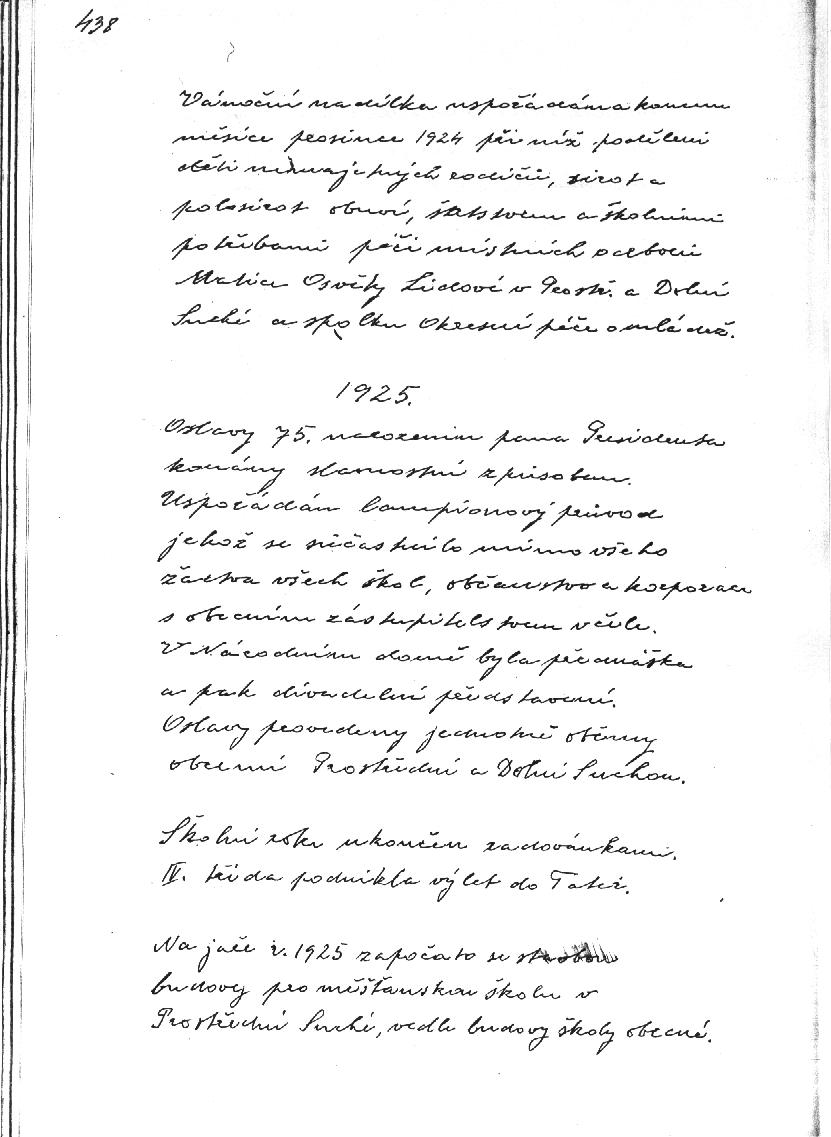 438
Vánoční nadílka uspořádána koncem
měsíce prosince 1924 při níž poděleni
děti nemajetných rodičů, sirot a
polosirot obuví, šatstvem a školními
potřebami péčí místních odborů
Matice Osvěty Lidové v Prostř. a Dolní
Suché a spolku Okresní péče o mládež.
1925.
Oslavy 75. narozenin pana Presidenta
konány slavnostní způsobem.
Uspořádán lampionový průvod
jehož se súčastnilo mimo všeho
žactva všech škol, občanstvo a korporace
s obecním zástupitelstvem v čele.
V Národním domě byla přednáška
a pak divadelní představení.
Oslavy provedeny jednotně oběmy
obcemi Prostřední a Dolní Suchou.
Školní rok ukončen radovánkami.
IV. třída podnikla výlet do Tater.
Na jaře r. 1925 započato se stavbou
budovy pro měšťanskou školu v
Prostřední Suché, vedle budovy školy obecné.